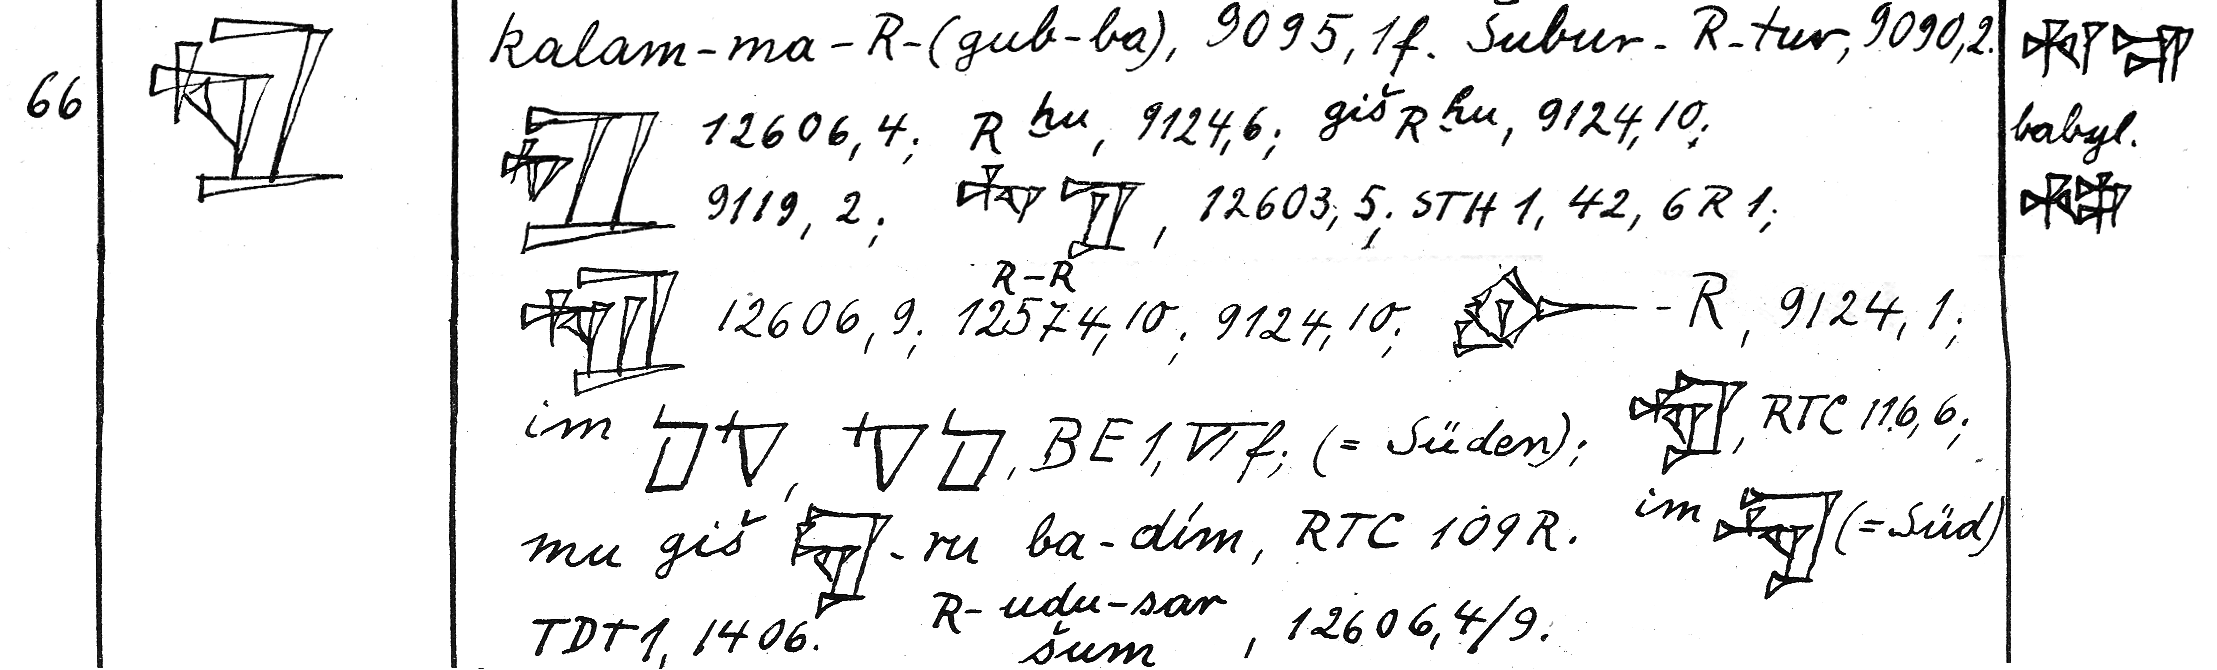 kalam-ma-R-(gub-ba), 9095,1f. Šubur-R-tur, 9090,2.
66
12606,4; R ḫu, 9124,6; giš R ḫu, 9124,10;
babyl.
9119, 2; , 12603,5; STH 1, 42, 6 R 1;
R-R
12606,9; 12574,10; 9124,10; -R, 9124,1;
im , , BE 1, VI f; (= Süden); , RTC 116,6;
mu giš -ru ba-dím, RTC 109 R. im (=Süd)
TDT 1, 1406. R-udu-sar , 12606,4/9.
šum